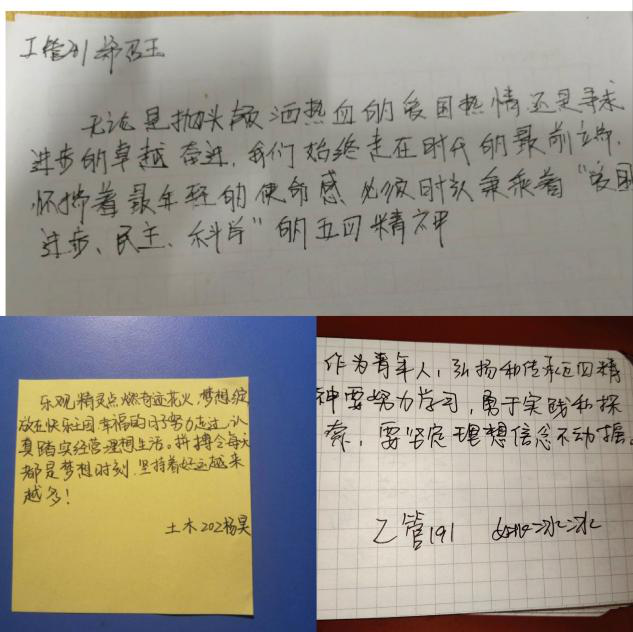 工管191
无论是抛头颅洒热血的爱国热情还是寻求
进步的卓越奋进,我们始终走在时代的最前端,
怀揣着最年轻的使命感 必须时刻秉承着“爱国
进步、民主、科学”的五四精神
乐观精灵点燃奇迹花火,梦想绽
放在快乐主园 幸福的日子努力走过,认
真踏实经营理想生活。拼搏会每天
都是梦想时刻,坚持着好运越来
越多!
土木202杨昊
作为青年人,弘扬和传承五四精
神要努力学习,勇于实践和探
索,要坚定理想信念不动摇。
工管191 冰冰